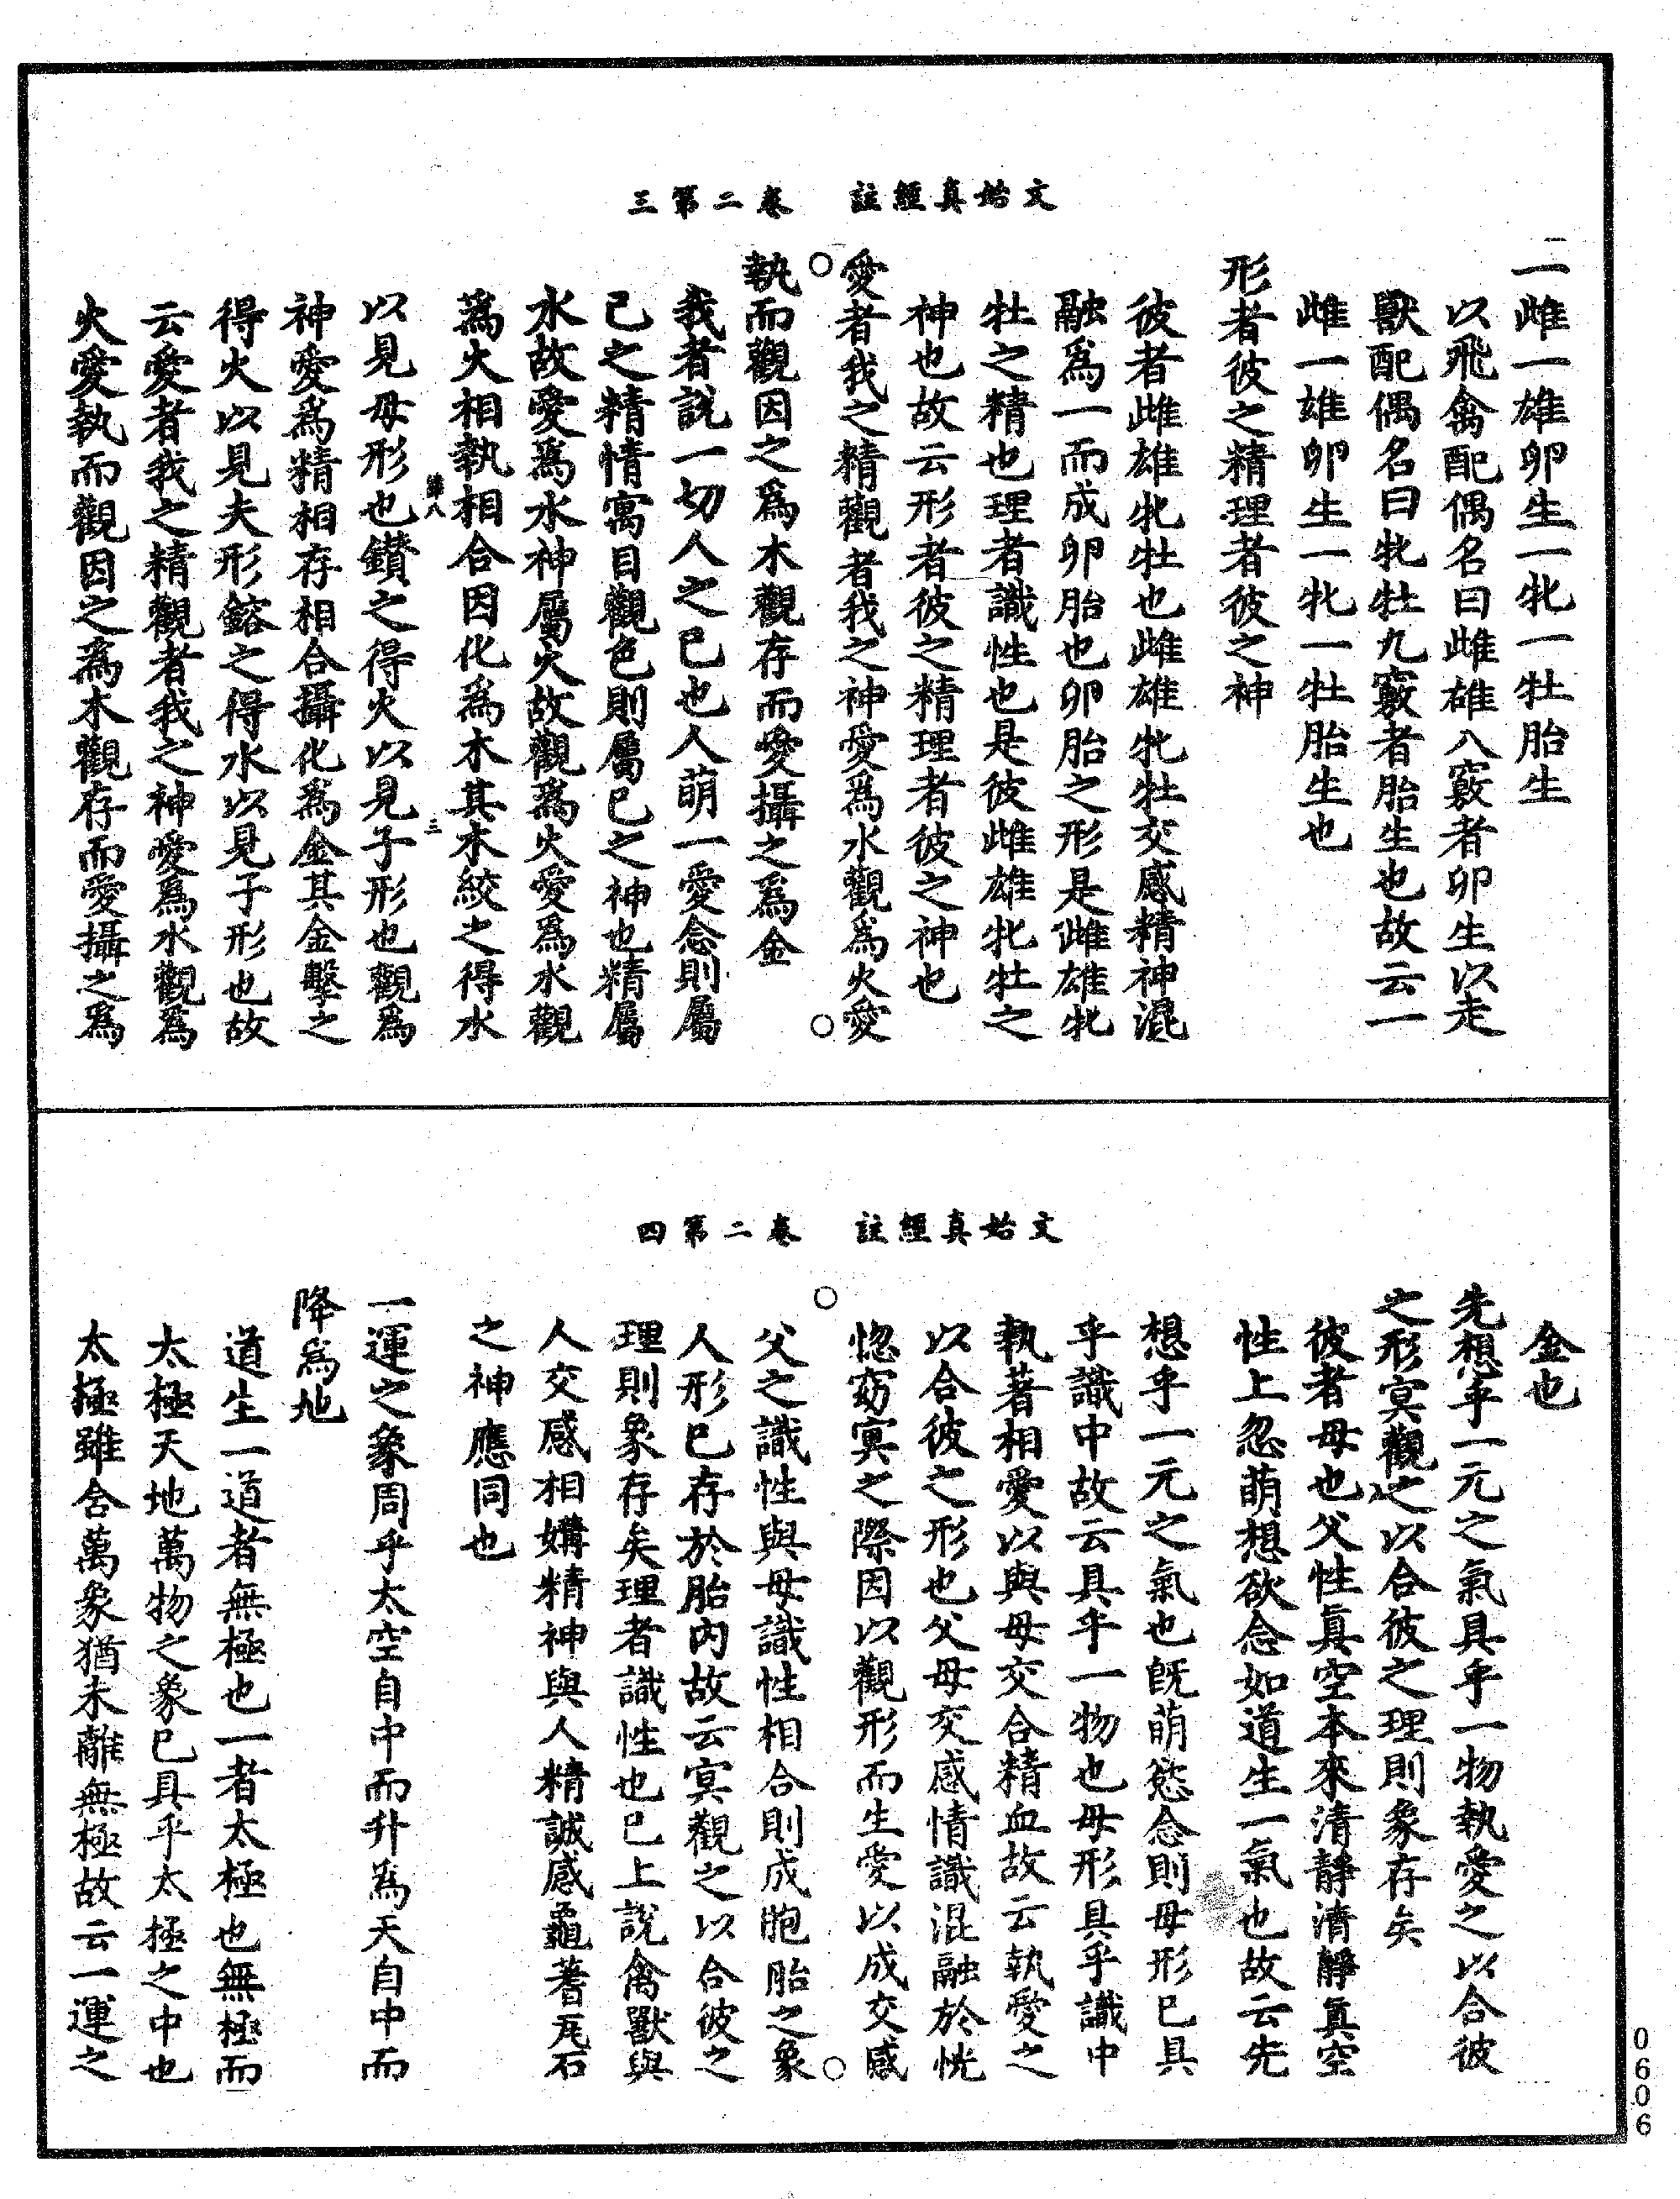 文始真經註　卷二第三
一雌一雄卵生一牝一牡胎生
以飛禽配偶名曰雌雄八竅者卵生以走
獸配偶名曰牝牡九竅者胎生也故云一
雌一雄卵生一牝一牡胎生也
形者彼之精理者彼之神
彼者雌雄牝牡也雌雄牝牡交感精神混
融爲一而成卵胎也卵胎之形是雌雄牝
牡之精也理者識性也是彼雌雄牝牡之
神也故云形者彼之精理者彼之神也
愛者我之精觀者我之神愛爲水觀爲火愛
執而觀因之爲木觀存而愛攝之爲金
我者說一切人之己也人萌一愛念則屬
己之精情寓目觀色則屬己之神也精屬
水故愛爲水神屬火故觀爲火愛爲水觀
爲火相執相合因化爲木其木絞之得水
以見母形也鑽之得火以見子形也觀爲
神愛爲精相存相合攝化爲金其金擊之
得火以見夫形鎔之得水以見子形也故
云愛者我之精觀者我之神愛爲水觀爲
火愛執而觀因之爲木觀存而愛攝之爲
文始真經註　卷二第四
金也
先想乎一元之氣具乎一物執愛之以合彼
之形冥觀之以合彼之理則象存矣
彼者母也父性真空本來清靜清靜真空
性上忽萌想欲念如道生一氣也故云先
想乎一元之氣也旣萌慾念則母形已具
乎識中故云具乎一物也母形具乎識中
執著相愛以與母交合精血故云執愛之
以合彼之形也父母交感情識混融於恍
惚窈冥之際因以觀形而生愛以成交感
父之識性與母識性相合則成胞胎之象
人形已存於胎内故云冥觀之以合彼之
理則象存矣理者識性也已上說禽獸與
人交感相媾精神與人精誠感龜蓍瓦石
之神應同也
一運之象周乎太空自中而升爲天自中而
降爲地
道生一道者無極也一者太極也無極而
太極天地萬物之象已具乎太極之中也
太極雖含萬象猶未離無極故云一運之
0606